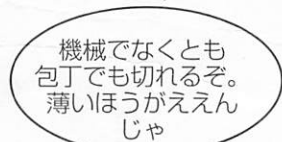 機械でなくとも
包丁でも切れるぞ。
薄いほうがええん
じゃ